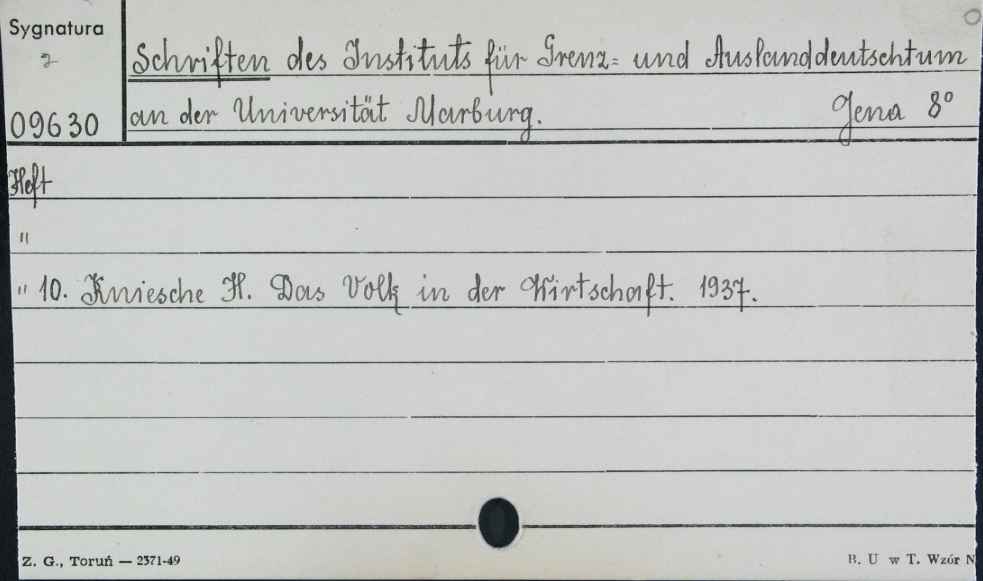 Sygnatura
2
09630
Schriften des Instituts für Grenz= und Auslanddeutschtum
an der Universität Marburg. Jena 8°
Heft
"
" 10. Kniesche H. Das Volk in der Wirtschaft. 1937.
Z. G., Toruń — 2371-49
B. U w T. Wzór N